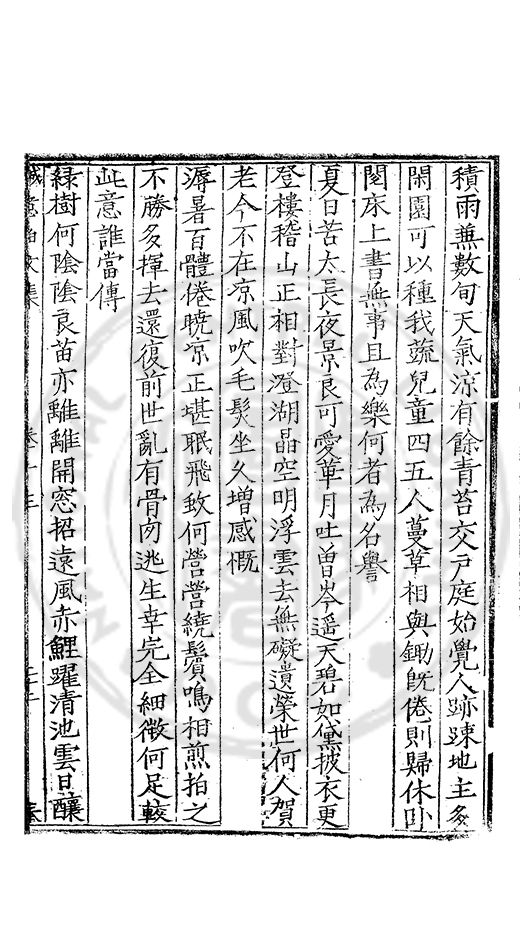 積雨無數旬天氣涼有餘青苔交戸庭始覺人跡踈地主多
閑園可以種我蔬兒童四五人蔓草相與鋤旣倦則歸休卧
閱床上書無事且為樂何者為名譽
夏日苦太長夜景良可愛華月吐曾岑遥天碧如黛披衣更
登樓稽山正相對澄湖晶空明浮雲去無礙遺榮世何人賀
老今不在凉風吹毛髮坐久增感慨
溽暑百體倦暁凉正堪眠飛蚊何營營繞鬢鳴相煎拍之
不勝多揮去還復前世亂有骨肉逃生幸完全細微何足較
此意誰當傳
緑樹何陰陰良苗亦離離開窓招遠風赤鯉躍清池雲日釀
誠意伯文集